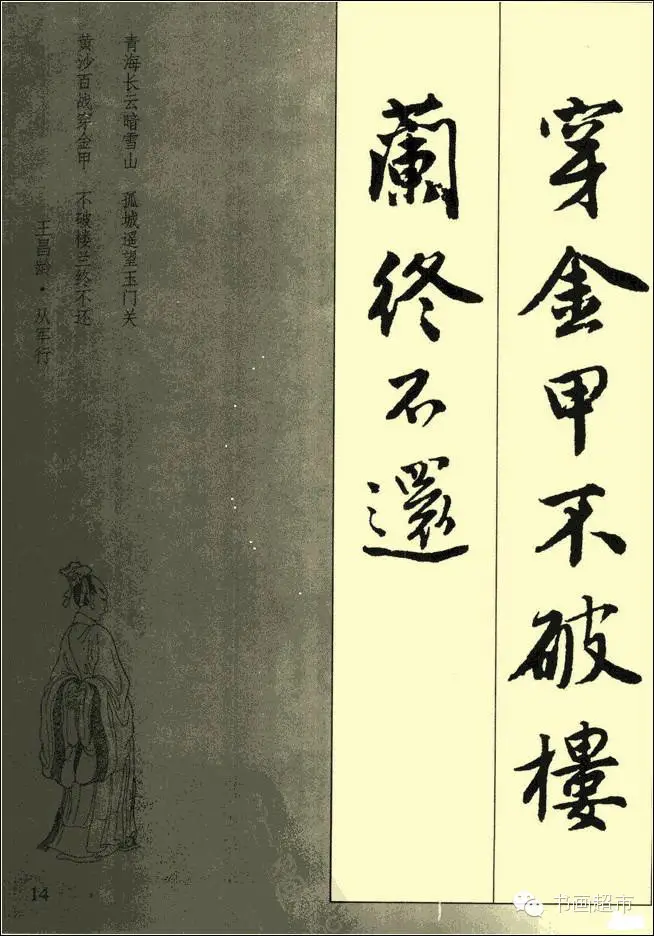 穿金甲不破樓
蘭終不還
青海长云暗雪山 孤城遥望玉门关
黄沙百战穿金甲 不破楼兰终不还
王昌龄·从军行
14
书画超市